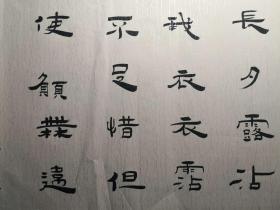 長夕露沾
我衣衣霑
不足惜但
使願無違